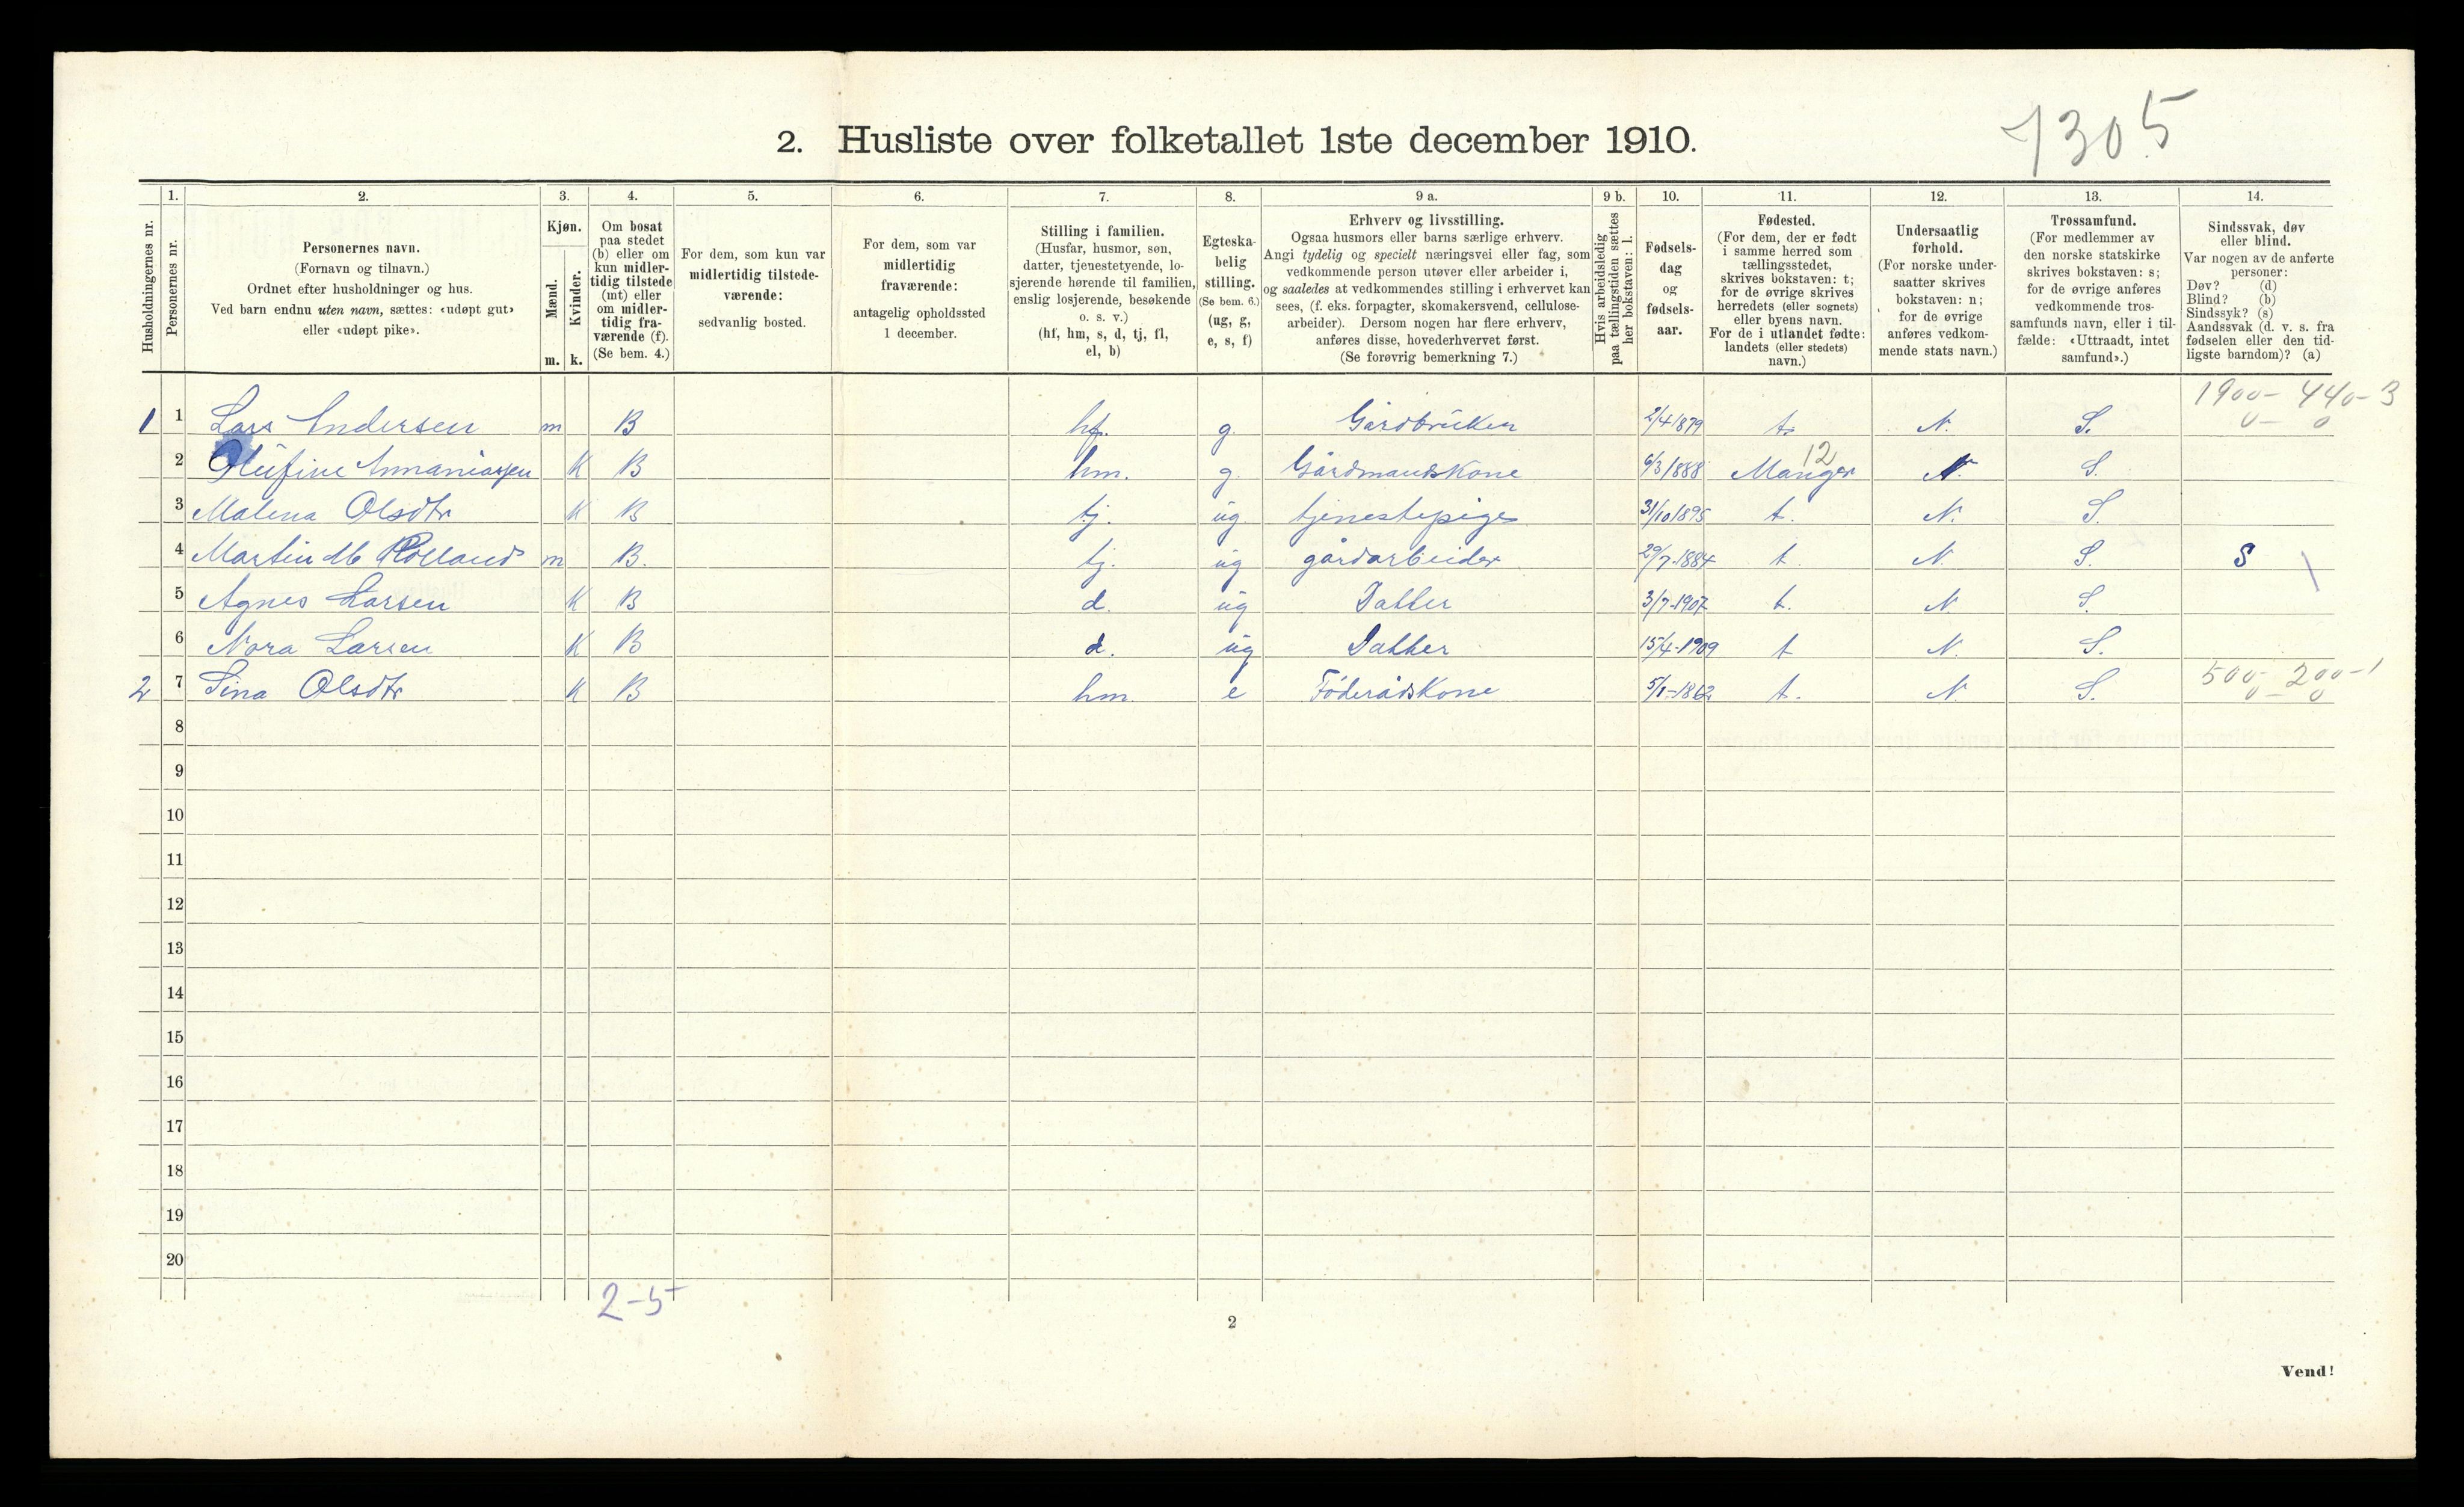 7305
2. Husliste over folketallet 1ste december 1910.
Husholdningernes nr.
1.
Personernes nr.
2.
Personernes navn.
(Fornavn og tilnavn.)
Ordnet efter husholdninger og hus.
Ved barn endnu uten navn, sættes: «udøpt gut»
eller «udøpt pike».
3.
Kjøn.
Mænd.
m.
Kvinder.
k.
4.
Om bosat
paa stedet
(b) eller om
kun midler-
tidig tilstede
(mt) eller
om midler-
tidig fra-
værende (f).
(Se bem. 4.)
5.
For dem, som kun var
midlertidig tilstede-
værende:
sedvanlig bosted.
6.
For dem, som var
midlertidig
fraværende:
antagelig opholdssted
1 december.
7.
Stilling i familien.
(Husfar, husmor, søn,
datter, tjenestetyende, lo-
sjerende hørende til familien,
enslig losjerende, besøkende
o. s. v.)
(hf, hm, s, d, tj, fl,
el, b)
8.
Egteska-
belig
stilling.
(Se bem. 6.)
(ug, g,
e, s, f)
9 a.
Erhverv og livsstilling.
Ogsaa husmors eller barns særlige erhverv.
Angi tydelig og specielt næringsvei eller fag, som
vedkommende person utøver eller arbeider i,
og saaledes at vedkommendes stilling i erhvervet kan
sees, (f. eks. forpagter, skomakersvend, cellulose-
arbeider). Dersom nogen har flere erhverv,
anføres disse, hovederhvervet først.
(Se forøvrig bemerkning 7.)
9 b.
Hvis arbeidsledig
paa tællingstiden sættes
her bokstaven: l.
10.
Fødsels-
dag
og
fødsels-
aar.
11.
Fødested.
(For dem, der er født
i samme herred som
tællingsstedet,
skrives bokstaven: t;
for de øvrige skrives
herredets (eller sognets)
eller byens navn.
For de i utlandet fødte:
landets (eller stedets)
navn.)
12.
Undersaatlig
forhold.
(For norske under-
saatter skrives
bokstaven: n;
for de øvrige
anføres vedkom-
mende stats navn.)
13.
Trossamfund.
(For medlemmer av
den norske statskirke
skrives bokstaven: s;
for de øvrige anføres
vedkommende tros-
samfunds navn, eller i til-
fælde: «Uttraadt, intet
samfund».)
14.
Sindssvak, døv
eller blind.
Var nogen av de anførte
personer:
Døv? (d)
Blind? (b)
Sindssyk? (s)
Aandssvak (d. v. s. fra
fødselen eller den tid-
ligste barndom)? (a)
1900- 440-3
1 1 Lars Andersen m B hf. g. Gårdbrüker 2/4 1879 t. N. S. 0 - 0
12
2 Olüfine Annaniassen K B hm. g. Gårdmandskone 6/3 1888 Manger N. S.
3 Malena Olsdtr K B tj. üg tjenestepige 31/10 1895 t. N. S.
4 Martin M Rolland m B. tj. üg gårdarbeider 29/7-1884 t. N. S. S \
5 Agnes Larsen K B d. üg Datter 3/7-1907 t. N. S.
6 Nora Larsen K B d. üg Datter 15/4-1909 t N. S.
500- 200-1
2 7 Sina Olsdtr K B hm. e Föderådskone 5/1-1862 t. N. S. 0 - 0
8
9
10
11
12
13
14
15
16
17
18
19
20
2-5
2
Vend!